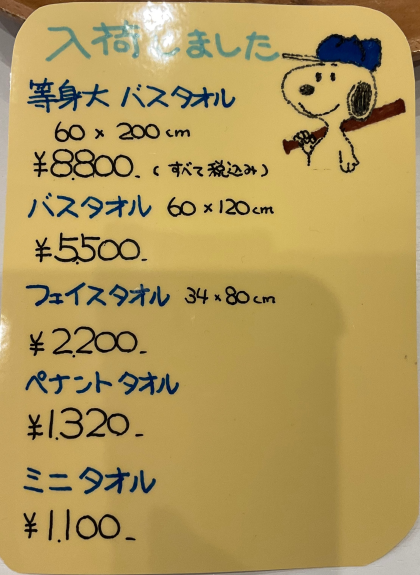 入荷しました
等身大 バスタオル
60 × 200cm
¥8.800.- (すべて税込み)
バスタオル 60 × 120cm
¥5.500.-
フェイスタオル 34 × 80cm
¥2.200.-
ペナントタオル
¥1.320.-
ミニタオル
¥1.100.-